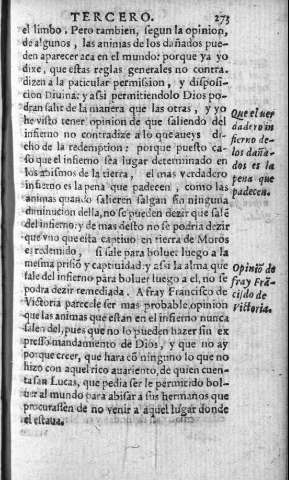 TERCERO. 273
el limbo. Pero tambien, segun la opinion,
de algunos, las animas de los dañados pue-
den aparecer aca en el mundo: porque ya yo
dixe, que estas reglas generales no contra-
dizen a la paticular permission, y disposi-
cion Diuina: y assi permitiendolo Dios po-
dran salir de la manera que las otras, y yo
he visto tener opinion de que saliendo del
infierno no contradize a lo que aueys di-
cho de la redemption: porque puesto ca-
so que el infierno sea lugar determinado en
los abismos de la tierra, el mas verdadero
infierno es la pena que padecen, como las
animas quando salieren salgan sin ninguna
diminucion della, no se pueden dezir que salē
del infierno: y de mas desto no se podria dezir
que vno que esta captiuo en tierra de Moros
es redemido, si sale para boluer luego a la
mesma prisiō y captiuidad: y assi la alma que
sale del infierno para boluer luego a el, no se
podra dezir remediada. A fray Francisco de
Victoria parecele ser mas probable opinion
que las animas que estan en el infierno nunca
salen del, pues que no lo pueden hazer sin ex
presso mandamiento de Dios, y que no ay
porque creer, que hara cō ninguno lo que no
hizo con aquel rico auariento, de quien cuen-
ta san Lucas, que pedia ser le permitido bol-
uer al mundo para abisar a sus hermanos que
procurassen de no venir a aquel lugar donde
el estaua.
Que el uer
dadero in
fierno de-
los daña-
dos es la
pena que
padecen.
Opiniō de
fray Frā-
cisco de
Victoria.